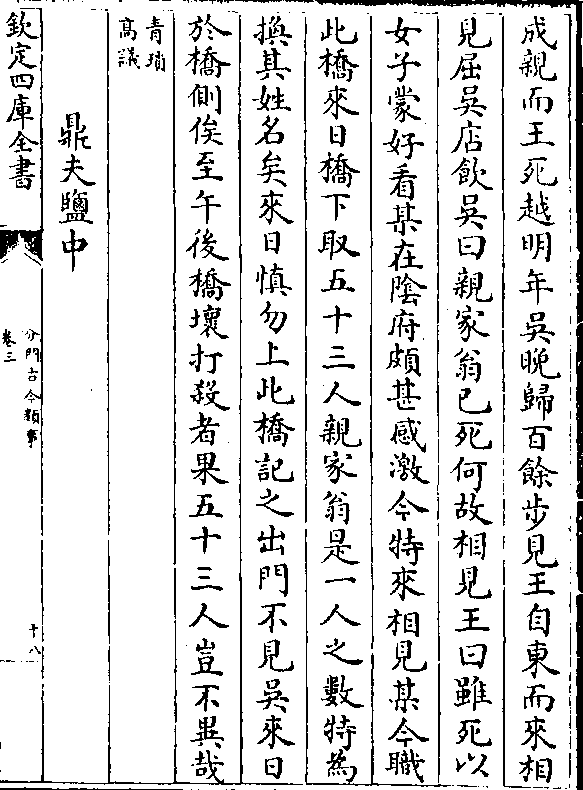 成親而王死越明年吳晚歸百餘步見王自東而來相
見屈吳店飲吳曰親家翁已死何故相見王曰雖死以
女子蒙好看某在陰府頗甚感激今特來相見某今職
此橋來日橋下取五十三人親家翁是一人之數特為
換其姓名矣來日慎勿上此橋記之出門不見吳來日
於橋側俟至午後橋壞打殺者果五十三人豈不異哉
青瑣
高議
鼎夫鹽中
欽定四庫全書
分門古今類事
卷三
十八